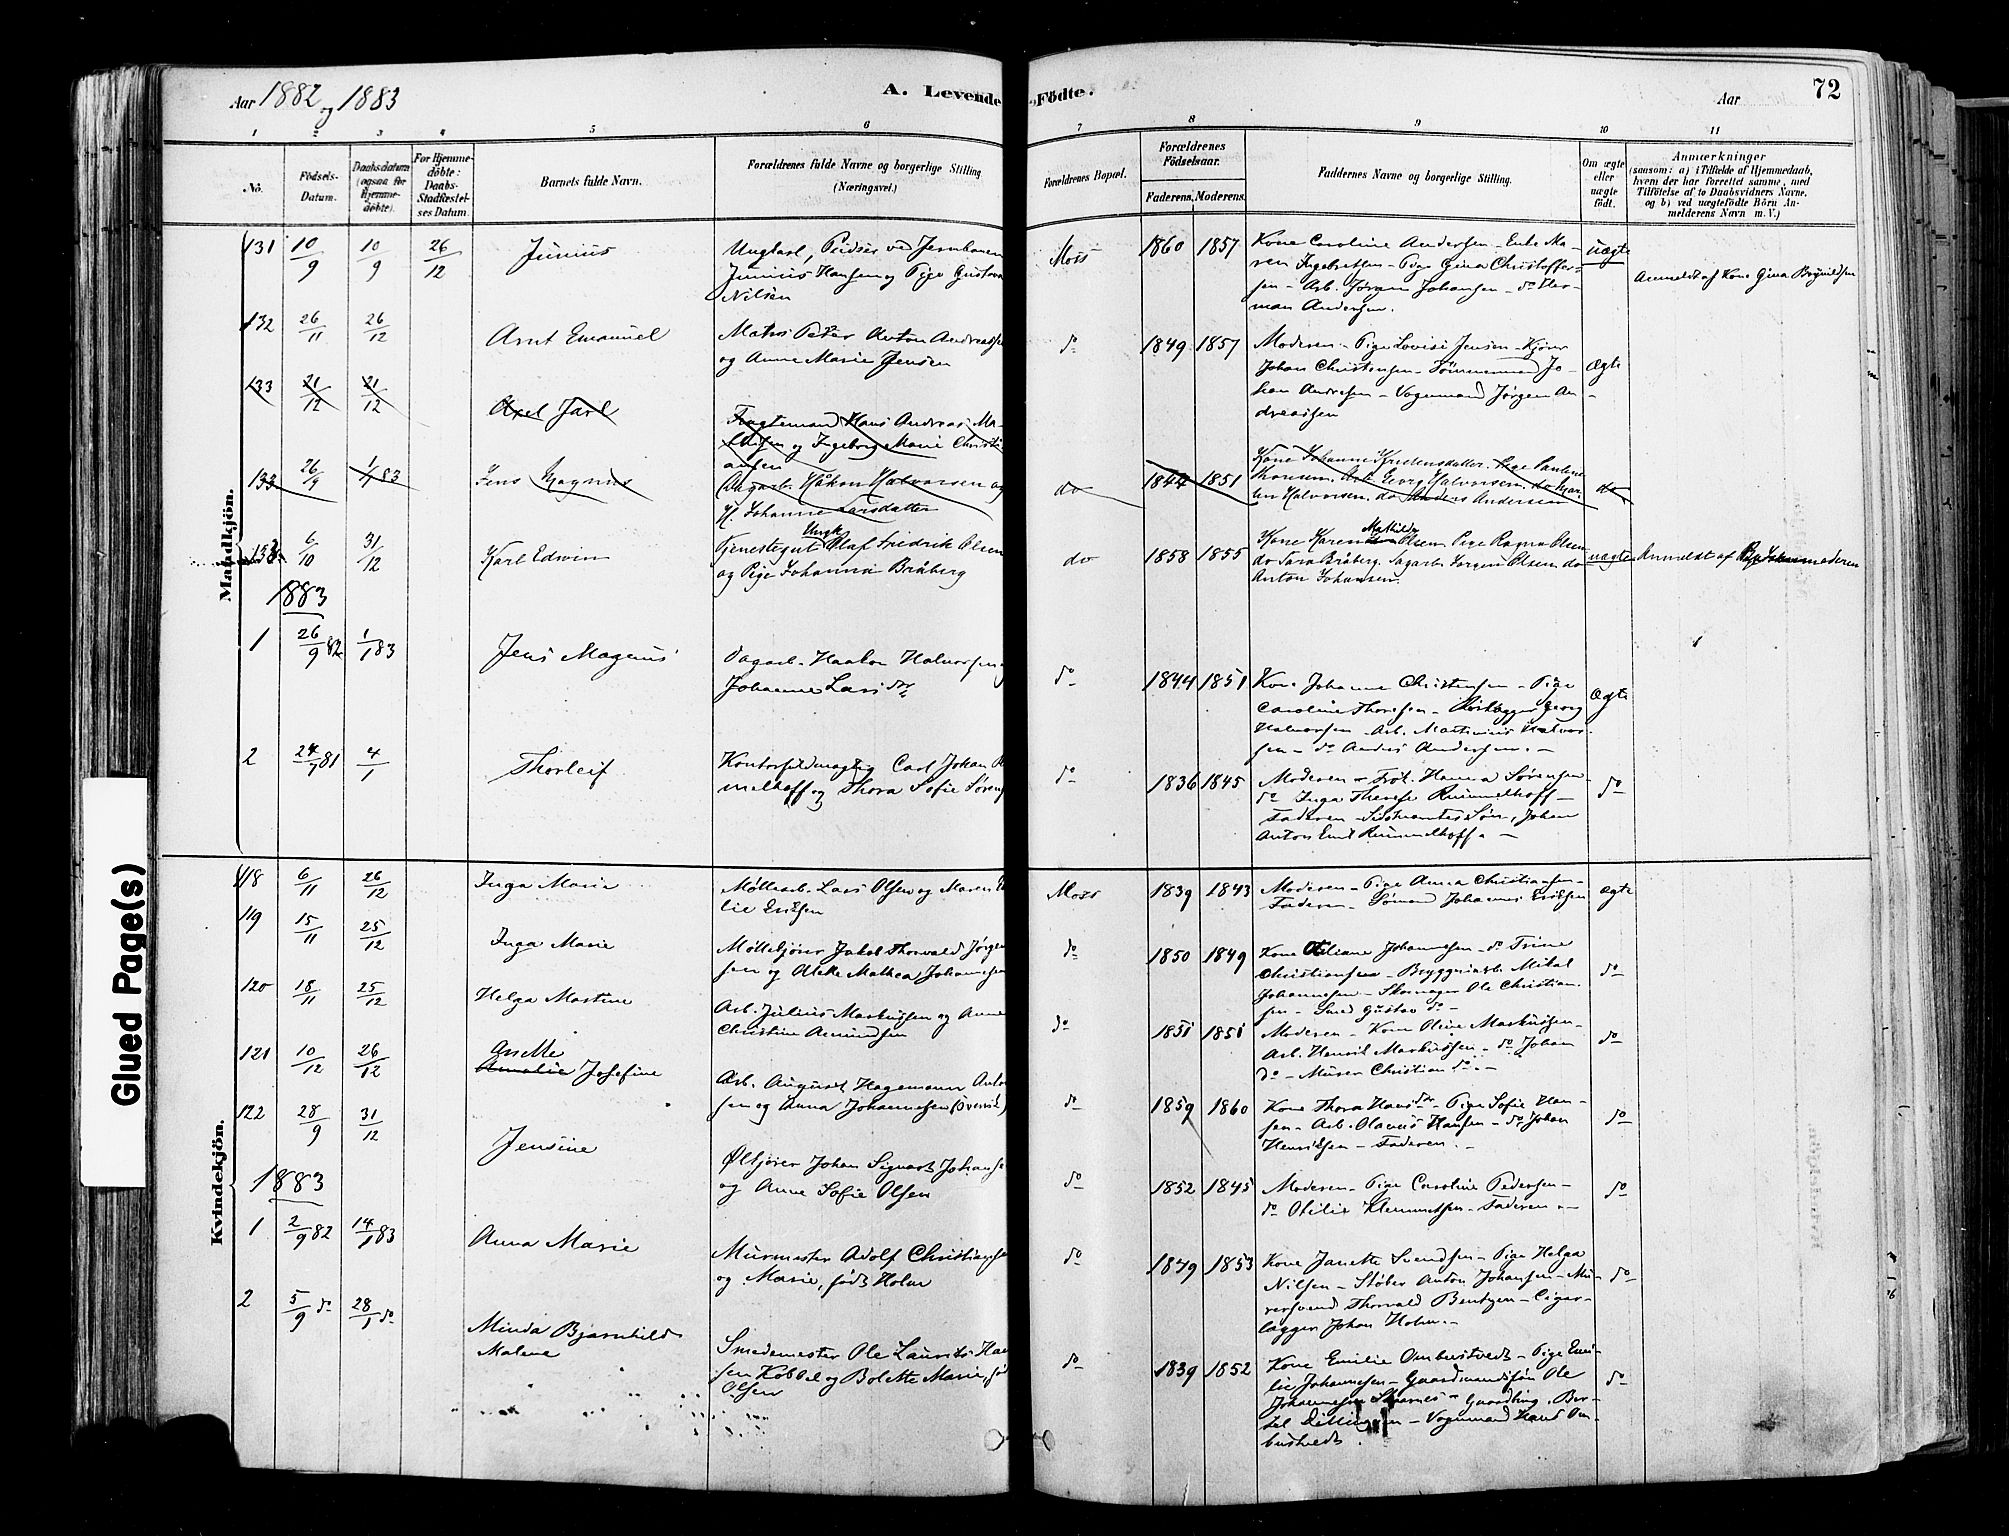 Aar 1882 og 1883
A. Levende Fødte.
Aar
72
1 2 3 4 5 6 7 8 9 10 11
No.
Fødsels-Datum.
Daabsdatum (ogsaa for Hjemmedøbte).
For Hjemmedøbte: Daabs-Stadfæstelses Datum.
Barnets fulde Navn.
Forældrenes fulde Navne og borgerlige Stilling (Næringsvei.)
Forældrenes Bopæl.
Forældrenes Fødselsaar.
Faderens. Moderens.
Faddernes Navne og borgerlige Stilling.
Om ægte eller uægte født.
Anmærkninger
(saasom: a) i Tilfælde af Hjemmedaab,
hvem der har forrettet samme, med
Tilføielse af to Daabsvidners Navne,
og b) ved uægtefødte Børn An-
melderens Navn m. V.)
Mandkjön.
131 10/9 10/9 26/12 Junius
Ungkarl, Pudser ved Jernbanen
Junius Hansen og Pige Gustava
Nilsen
Moss 1860 1857
Kone Caroline Andersen - Enke Ma-
ren Ingebretsen - Pige Gina Christoffer-
sen - Arb. Jørgen Johansen - do Her-
man Andersen.
uægte
Anmeldt af Kone Gina Brynildsen
132 26/11 26/12 Arnt Emanuel
Matros Peter Anton Andreassen
og Anne Marie Jensen
do 1849 1857
Moderen - Pige Lovise Jensen - Kjører
Johan Christensen - Tømmermand Jo-
han Andresen - Vognmand Jørgen An-
dreassen
Ægte
133 21/12 21/12 Axel Jarl
Fragtemand Hans Andreas Ma-
thisen og Ingebrog Marie Christi-
ansen
133 26/9 1/1 83 Jens Magnus
Dagarb. Håkon Halvorsen og
H. Johanne Larsdatter
do 1844 1851
Kone Johanne Kristensdatter. Pige Pauline
Thorsen. Arb. Georg Halvorsen. do Mar-
tin Halvorsen. do Anders Andersen
do
133 6/10 31/12 Karl Edwin
Ungk.
Tjenestegut Olaf Fredrik Olsen
og Pige Johanna Bråberg
do 1858 1855
Mathilde
Kone Karen Olsen Pige Ragna Olsen
do Sara Bråberg. Sagarb. Jørgen Olsen do
Anton Johansen.
uægte
Anmeldt af moderen
1883
1 26/9 82 1/1 83 Jens Magnus
Dagarb. Haakon Halvorsen
Johanne Larsdr
do 1844 1851
Kone Johanne Christensen - Pige
Caroline Thoresen - Georg
Halvorsen - Arb. Martinius Halvor-
sen - do Anders Andersen. -
Ægte
2 24/7 81 4/1 Thorleif
Kontorfuldmægtig Carl Johan
melhoff og Thora Sofie Sørens
do 1836 1845
Moderen - Frøk. Hanna Sørensen
do Inga Therese Rummelhoff -
Faderen - Søn, Johan
Anton Emil Rummelhoff. -
do
Kvindekjön.
118 6/11 26/12 Inga Maria
Møllearb. Lars Olsen og Maren
lie Eriksen
Moss 1839 1843
Moderen - Pige Anna Christiansen -
Faderen - Sømand Johannes Eriksen
ægte
119 15/11 25/12 Inga Marie
Møllekjører Jakob Thorvald Jørgen
sen og Alette Mathea Johannesen
do 1850 1849
Kone Oliane Johannesen - do Trine
Christiansen - Bryggeriarb. Mikal
Johannesen - Skomager Ole Christian-
sen - Smed Gustav do -
do
120 18/11 25/12 Helga Martine
Arb. Julius Markussen og Anne
Christine Amundsen
do 1851 1851
Moderen - Kone Oline Markussen -
Arb. Henrik Markussen - do Johan
do - Murer Christian do. -
do
121 10/12 26/12
Anette
Amalie Josefine
Arb. August Hagemann Anton
sen og Anna Johannesen (Øvervik)
do 1859 1860
Kone Thora Hansdr - Pige Sofie Han-
sen - Arb. Olavus Hansen - do Johan
Henriksen - Faderen. -
do
122 28/9 31/12 Jensine
Ølkjører Johan Sigvart Johanse
og Anne Sofie Olsen
do 1852 1845
Moderen - Pige Caroline Pedersen -
do Otilie Klemmetsen - Faderen. -
do
1883
1 2/9 82 14/1 83 Anna Marie
Murmester Adolf Christianse
og Marie, født Holm
do 1849 1853
Kone Janette Svendsen - Pige Helga
Nilsen - Støber Anton Johansen - Mu-
rersvend Thorvald Bentzen - Cigar-
lægger Johan Holm. -
do
2 5/9 do 28/1 do Minda Bjarnhild
Malene
Smedemester Ole Laurits Han
sen Kobbel og Bolette Marie, fø
Olsen
do 1839 1852
Kone Emilie Ombustvedt - Pige Emi-
lie Johannesen - Gaardmandssøn Ole
Johannesen - Gaardbrug. Ber-
tel - Vognmand Hans Om-
bustvedt.
do
Glued Page(s)